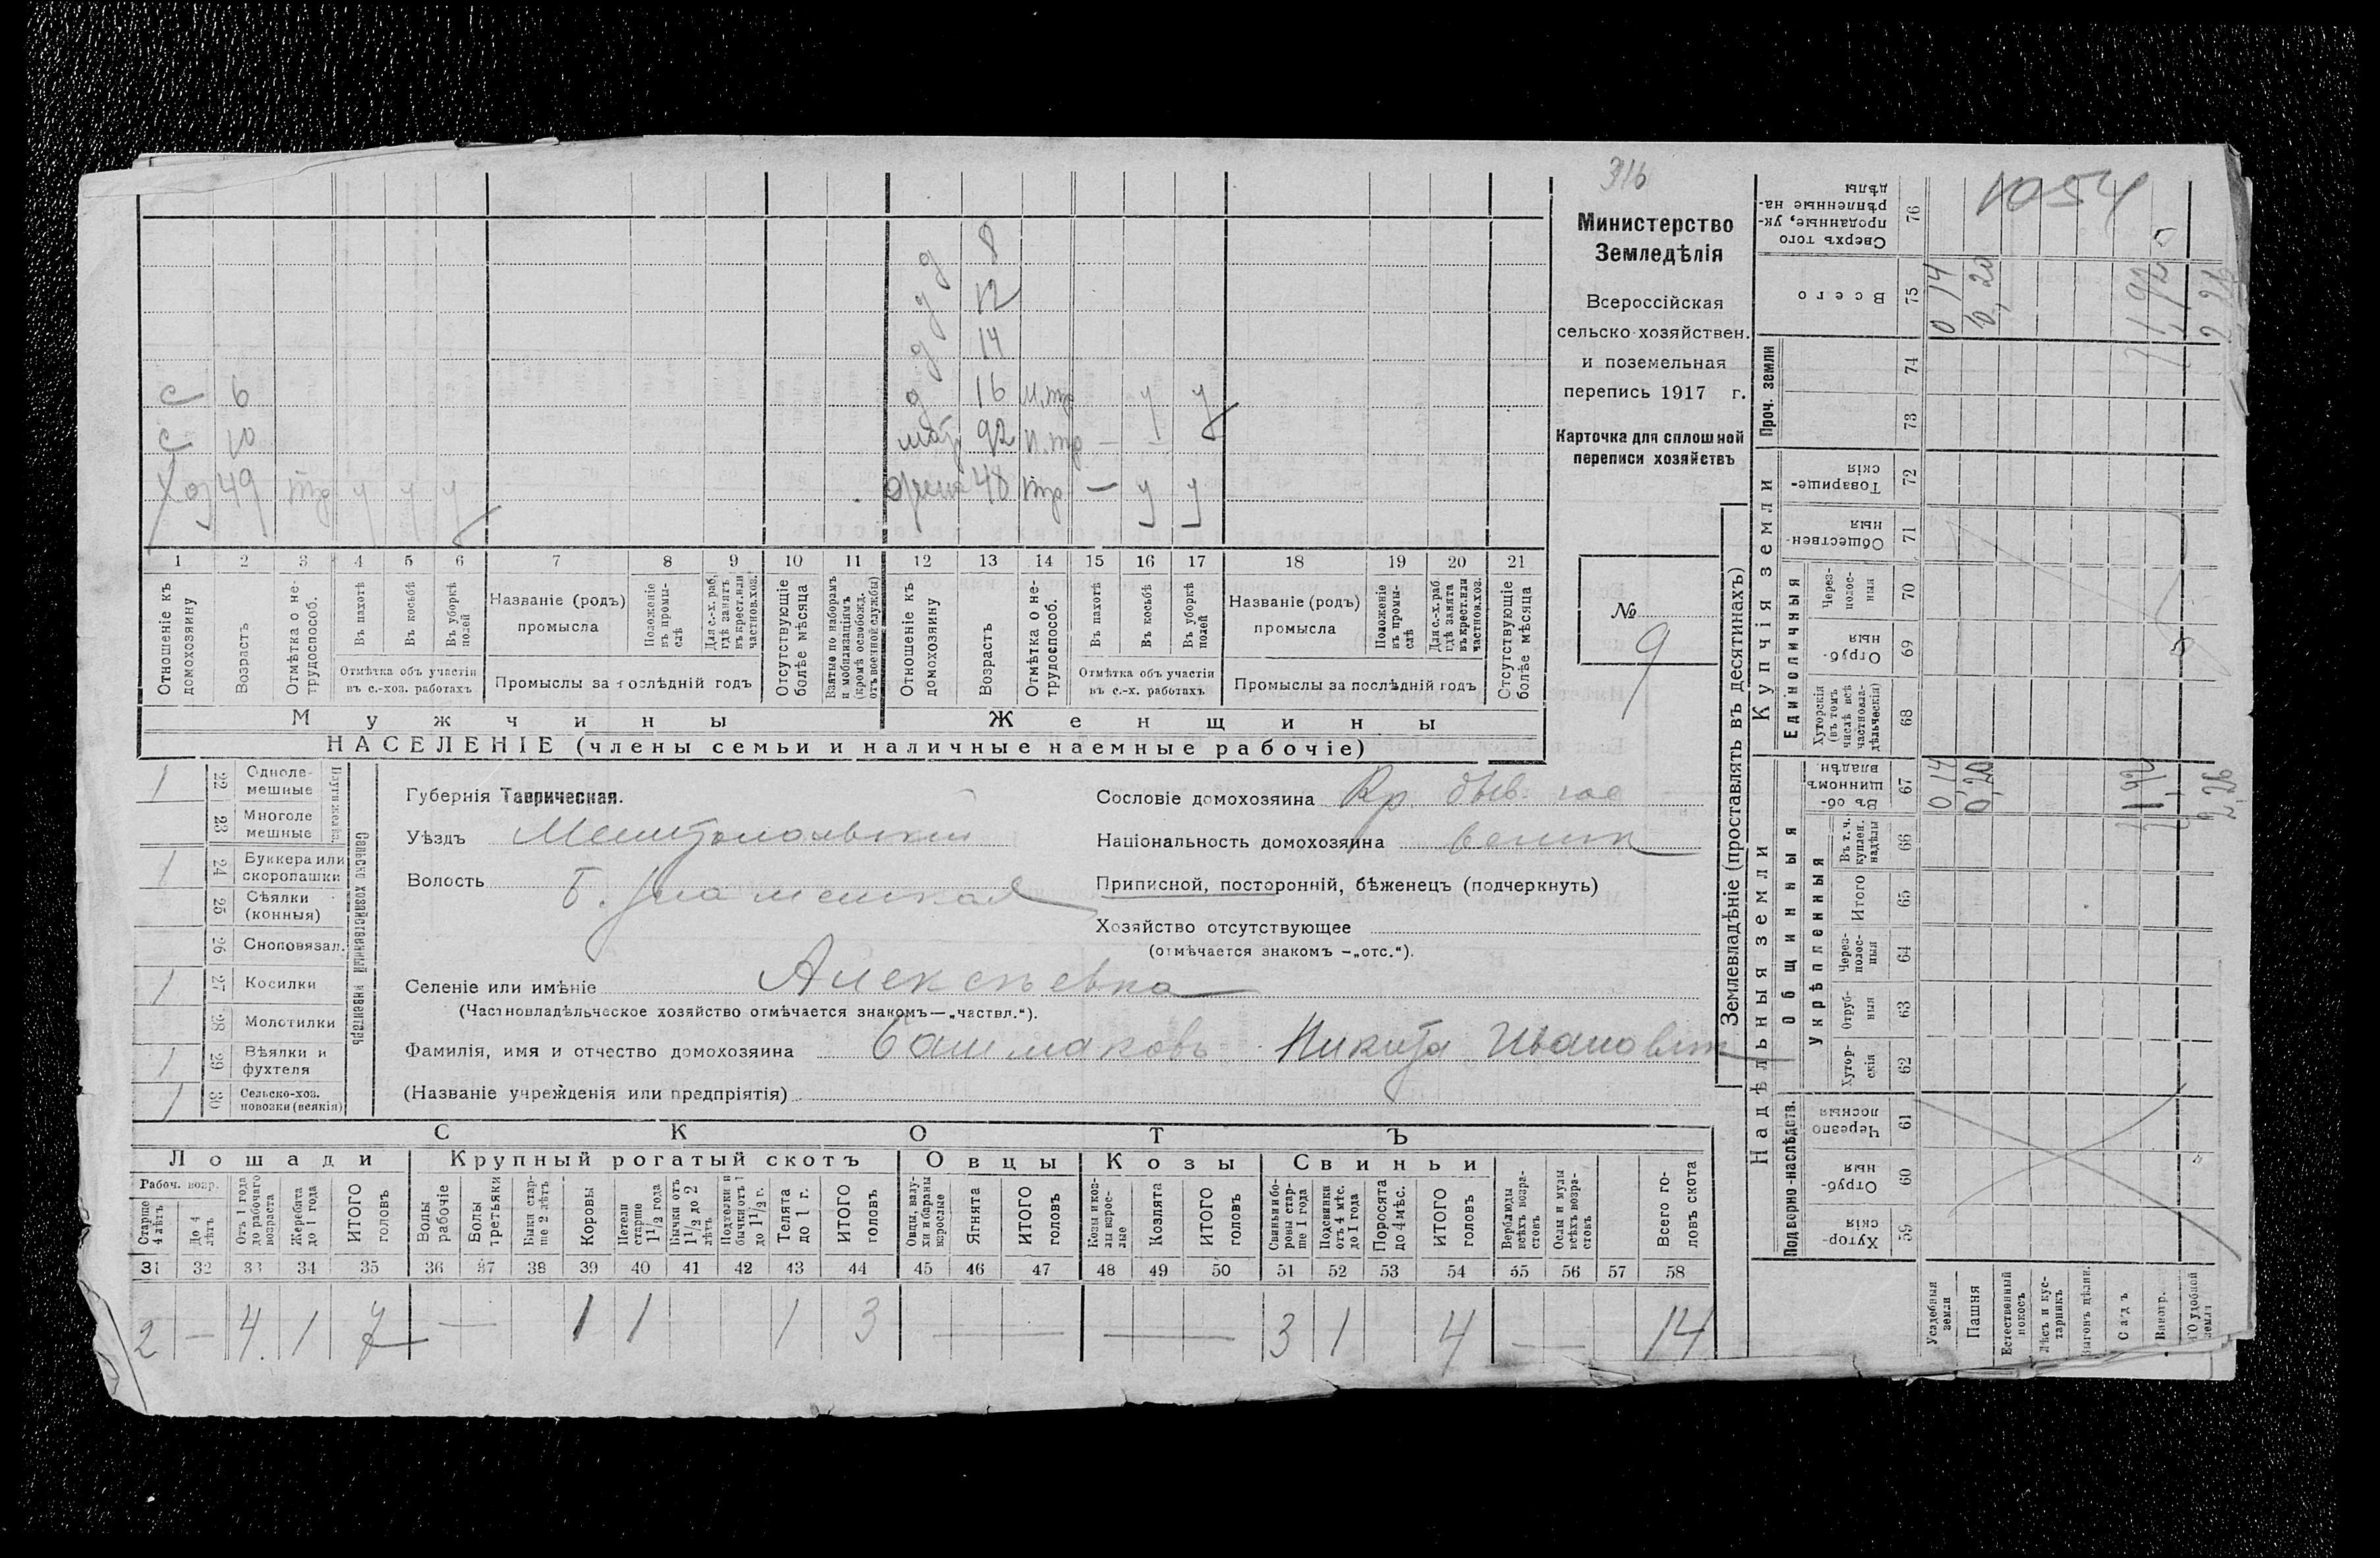 316
Министерство
Земледѣлія
Всероссійская
сельско-хозяйствен.
и поземельная
перепись 1917 г.
Карточка для сплошной
переписи хозяйствъ
№
9
1054
д 8
д 12
д 14
с 6 д 16 у у
с 10 мат 92 —
Хоз 49 тр у у у жена 48 тр — у у
1 2 3 4 5 6 7 8 9 10 11 12 13 14 15 16 17 18 19 20 21
Отношеніе къ домохозяину
Возрастъ
Отмѣтка о нетрудоспособ.
Въ пахотѣ
Въ косьбѣ
Въ уборкѣ полей
Отмѣтка объ участіи
въ с.-хоз. работахъ
Названіе (родъ)
промысла
Положеніе въ промыслѣ
Для с.-х. раб. гдѣ занятъ въ крест. или частнов. хоз.
Промыслы за послѣдній годъ
Отсутствующіе болѣе мѣсяца
Взятые по наборамъ и мобилизаціямъ (кромѣ освобожд. отъ военной службы)
Отношеніе къ домохозяину
Возрастъ
Отмѣтка о нетрудоспособ.
Въ пахотѣ
Въ косьбѣ
Въ уборкѣ полей
Отмѣтка объ участіи
въ с.-х. работахъ
Названіе (родъ)
промысла
Положеніе въ промыслѣ
Для с.-х. раб. гдѣ занята въ крест. или частнов. хоз.
Промыслы за послѣдній годъ
Отсутствующіе болѣе мѣсяца
Мужчины Женщины
НАСЕЛЕНІЕ (члены семьи и наличные наемные рабочіе)
Сельско хозяйственный инвентарь
1 22 Одноле-мешные
23 Многоле мешные
1 24 Буккера или скоропашки
25 Сѣялки (конныя)
26 Сноповязал.
1 27 Косилки
28 Молотилки
1 29 Вѣялки и фухтеля
1 30 Сельско-хоз. повозки (всякія)
Губернія Таврическая.
Уѣздъ Мелитопольскій
Волость Б. Знаменская
Сословіе домохозяина Кр. быв. гос
Національность домохозяина велик
Приписной, посторонній, бѣженецъ (подчеркнуть)
Хозяйство отсутствующее
(отмѣчается знакомъ –„отс.“).
Селеніе или имѣніе Алексѣевка
(Частновладѣльческое хозяйство отмѣчается знакомъ—„частвл.“).
Фамилія, имя и отчество домохозяина Башмаковъ Никита Иванович
(Названіе учрежденія или предпріятія)
СКОТЪ
Лошади Крупный рогатый скотъ Овцы Козы Свиньи
Рабоч. возр.
Старше 4 лѣтъ
До 4 лѣтъ
Отъ 1 года до рабочаго возраста
Жеребята до 1 года
ИТОГО головъ
Волы рабочіе
Волы третьяки
Быки старше 2 лѣтъ
Коровы
Нетели старше 1 1/2 года
Бычки отъ 1 1/2 до 2 лѣтъ
Подтелки и бычки отъ 1 до 1 1/2 г.
Телята до 1 г.
ИТОГО головъ
Овцы, валухи и бараны взрослые
Ягнята
ИТОГО головъ
Козы и козлы взрослые
Козлята
ИТОГО головъ
Свиньи и боровы старше 1 года
Подсвинки отъ 4 мѣс. до 1 года
Поросята до 4 мѣс.
ИТОГО головъ
Верблюды всѣхъ возрастовъ
Ослы и мулы всѣхъ возрастовъ
Всего головъ скота
31 32 33 34 35 36 37 38 39 40 41 42 43 44 45 46 47 48 49 50 51 52 53 54 55 56 57 58
2 — 4 1 7 — 1 1 1 3 — — 3 1 4 — 14
Землевладѣніе (проставлять въ десятинахъ)
Надѣльныя земли
Купчія земли
Проч. земли
Подворно-наслѣдств.
Общинныя
Укрѣпленныя
Единоличныя
Хуторскія 59
Отрубныя 60
Черезполосныя 61
Хуторскія 62
Отрубныя 63
Черезполосныя 64
Итого 65
Въ т. ч. куплен. надѣлы 66
Въ общинномъ владѣн. 67
Хуторскія (въ томъ числѣ всѣ частновладѣльческія) 68
Отрубныя 69
Черезполосныя 70
Общественныя 71
Товарищескія 72
73
74
Всего 75
Сверхъ того проданные, укрѣпленные надѣлы 76
Усадебныя земли 0 14 0 14
Пашня 0,20 0,20
Естественный покосъ
Лѣсъ и кустарникъ
Выгонъ цѣлин.
Садъ 1 92 1,92
Виногр.
удобной земли 2,26 2 26